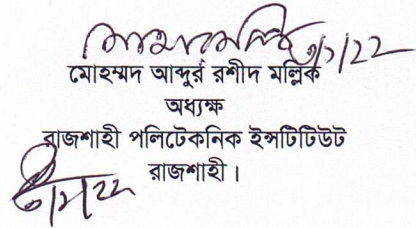 ৩/১/22
মোহম্মদ আব্দুর রশীদ মল্লিক
অধ্যক্ষ
রাজশাহী পলিটেকনিক ইন্সটিটিউট
রাজশাহী।